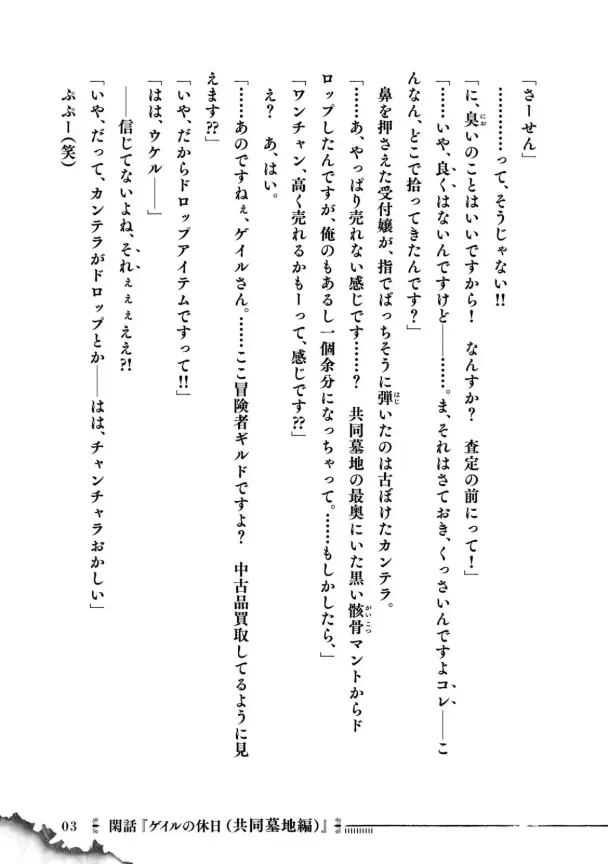 「さーせん」
…………って、そうじゃない!!
「に、臭いのことはいいですから！　なんすか？　査定の前にって！」
「……いや、良くはないんですけど――……。ま、それはさておき、くっさいんですよコレ――こ
んなん、どこで拾ってきたんです？」
鼻を押さえた受付嬢が、指でばっちそうに弾いたのは古ぼけたカンテラ。
「……あ、やっぱり売れない感じです……？　共同墓地の最奥にいた黒い骸骨マントからド
ロップしたんですが、俺のもあるし一個余分になっちゃって。……もしかしたら、」
「ワンチャン、高く売れるかもーって、感じです??」
え？　あ、はい。
「……あのですねぇ、ゲイルさん。……ここ冒険者ギルドですよ？　中古品買取してるように見
えます??」
「いや、だからドロップアイテムですって!!」
「はは、ウケル――」
――信じてないよね、それぇぇぇええ?!
「いや、だって、カンテラがドロップとか――はは、チャンチャラおかしい」
ぷぷー（笑）
03　閑話『ゲイルの休日（共同墓地編）』